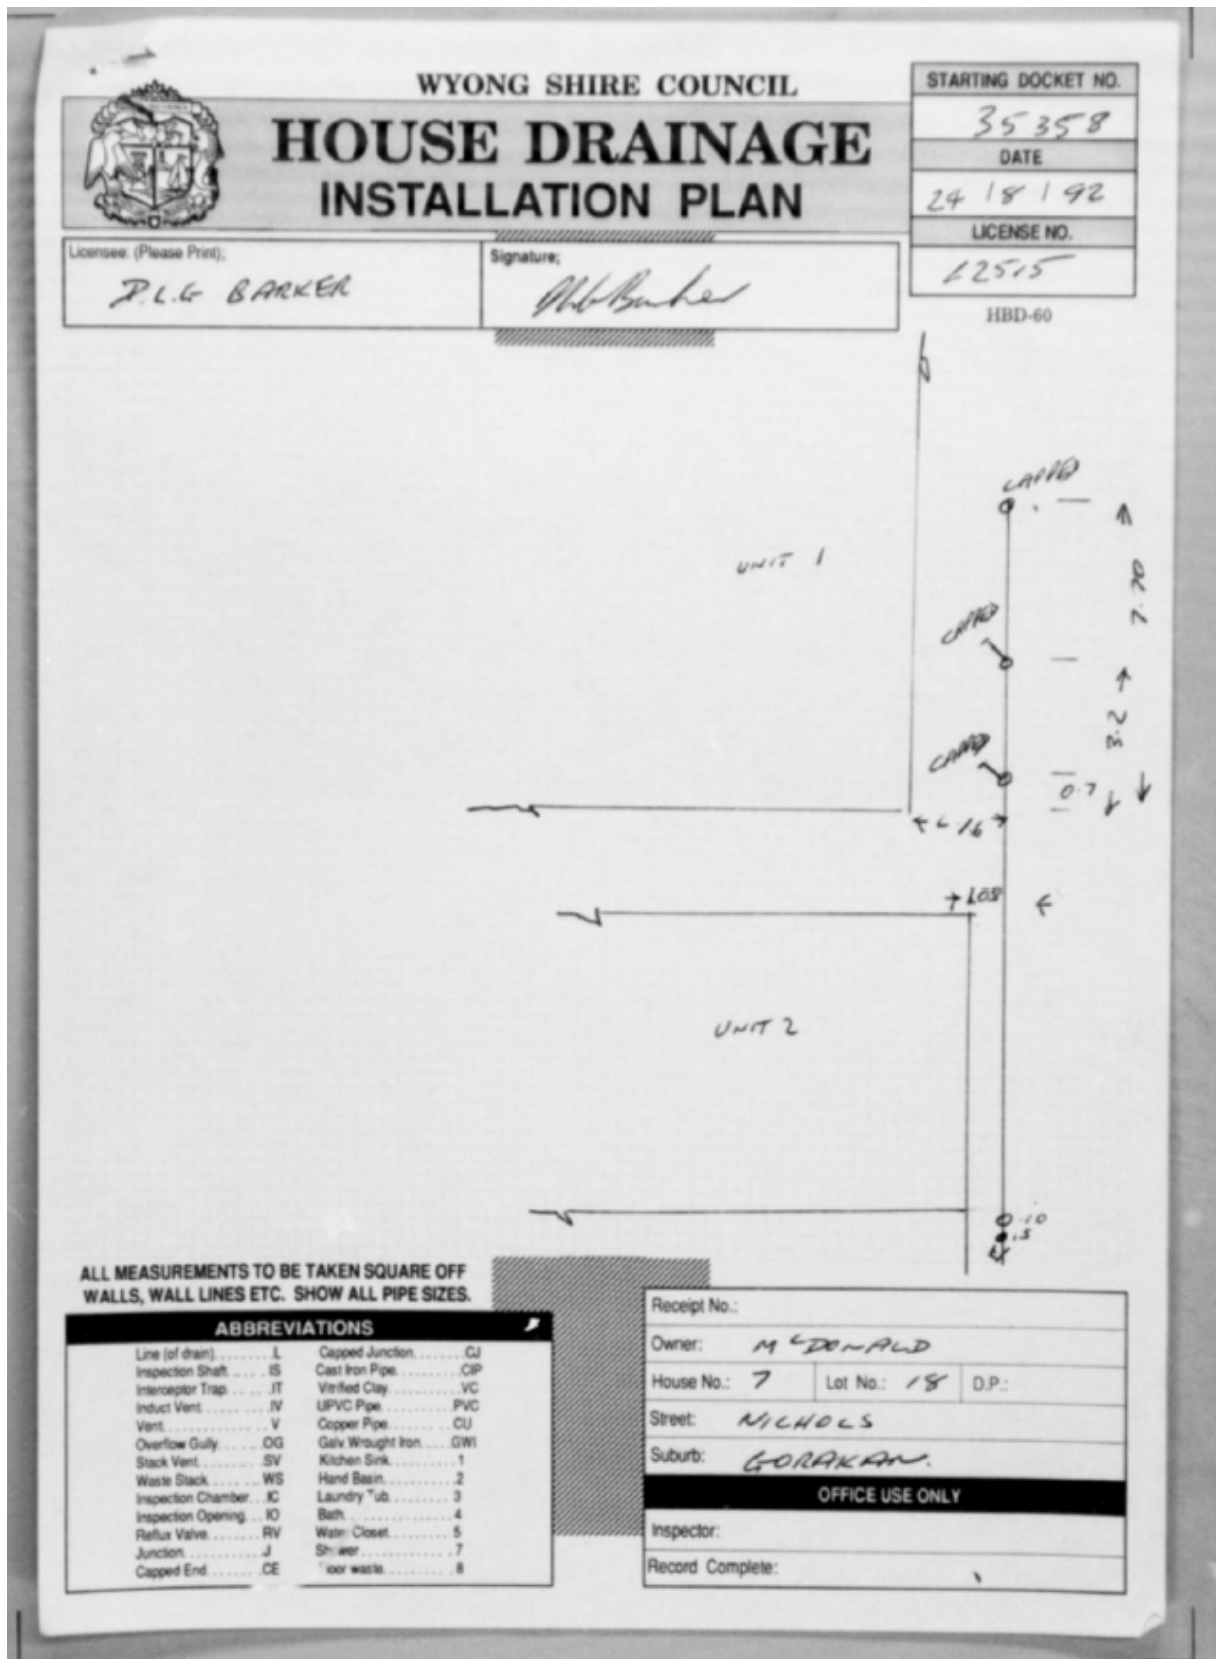 WYONG SHIRE COUNCIL
HOUSE DRAINAGE
INSTALLATION PLAN
STARTING DOCKET NO.
35358
DATE
24 | 8 | 92
LICENSE NO.
L2515
HBD-60
Licensee: (Please Print);
D.L.G BARKER
Signature;
CAPPED
UNIT 1
7.70
CAPPED
3.2
CAPPED
0.7
1.08
UNIT 2
ALL MEASUREMENTS TO BE TAKEN SQUARE OFF
WALLS, WALL LINES ETC. SHOW ALL PIPE SIZES.
ABBREVIATIONS
Line (of drain)........L
Inspection Shaft......IS
Interceptor Trap......IT
Induct Vent..........IV
Vent................V
Overflow Gully.......OG
Stack Vent..........SV
Waste Stack........WS
Inspection Chamber...IC
Inspection Opening...IO
Reflux Valve.........RV
Junction.............J
Capped End.........CE
Capped Junction........CJ
Cast Iron Pipe..........CIP
Vitrified Clay..........VC
UPVC Pipe..........PVC
Copper Pipe..........CU
Galv. Wrought Iron....GWI
Kitchen Sink..........1
Hand Basin..........2
Laundry Tub..........3
Bath................4
Water Closet..........5
Shower..............7
Floor waste..........8
Receipt No.:
Owner: McDONALD
House No.: 7 Lot No.: 18 D.P.:
Street: NICHOLS
Suburb: GORAKAN.
OFFICE USE ONLY
Inspector:
Record Complete: